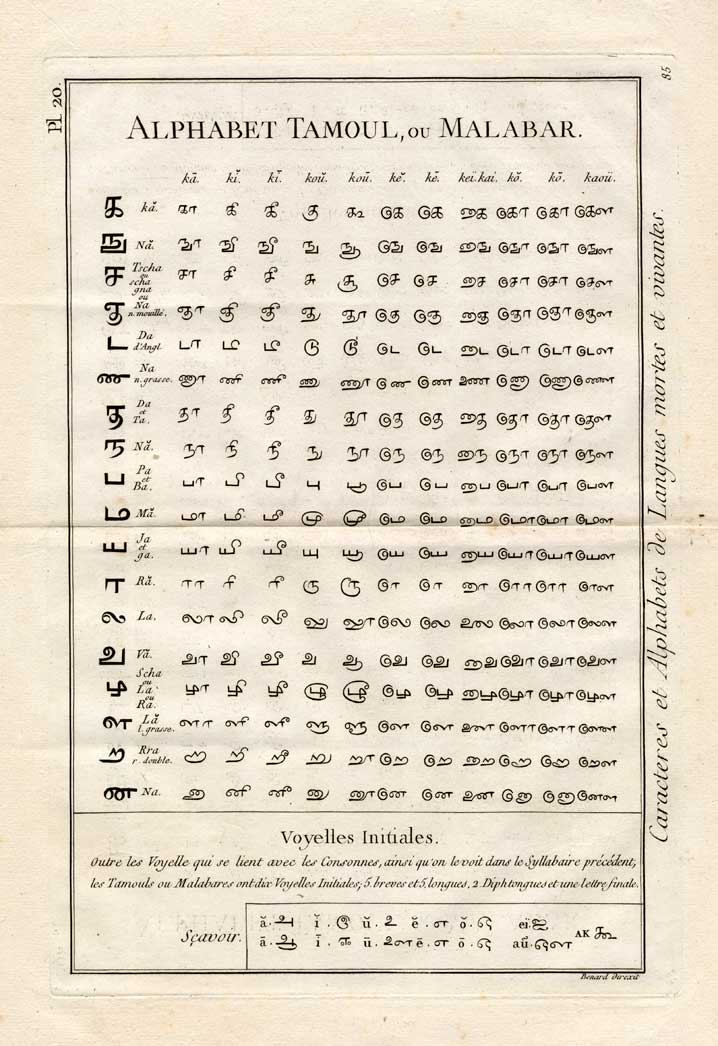 Pl. 20.
85
ALPHABET TAMOUL, OU MALABAR.
kā. kĭ. kī. koŭ. koū. kĕ. kē. keï. kai. kŏ. kō. kaoü.
க kă. கா கி கீ கு கூ கெ கெ கை கொ கொ கௌ
ங Nă. ஙா ஙி ஙீ ஙு ஙூ ஙெ ஙெ ஙை ஙொ ஙொ ஙௌ
ச Tscha ou scha சா சி சீ சு சூ செ செ சை சொ சொ சௌ
ஞ gna ou Na n. mouillé. ஞா ஞி ஞீ ஞு ஞூ ஞெ ஞெ ஞை ஞொ ஞொ ஞௌ
ட Da d'Angl. டா டி டீ டு டூ டெ டெ டை டொ டொ டௌ
ண Na n. grasse. ணா ணி ணீ ணு ணூ ணெ ணெ ணை ணொ ணொ ணௌ
த Da et Ta. தா தி தீ து தூ தெ தெ தை தொ தொ தௌ
ந Nă. நா நி நீ நு நூ நெ நெ நை நொ நொ நௌ
ப Pa et Ba. பா பி பீ பு பூ பெ பெ பை பொ பொ பௌ
ம Mă. மா மி மீ மு மூ மெ மெ மை மொ மொ மௌ
ய Ja et ga. யா யி யீ யு யூ யெ யெ யை யொ யொ யௌ
ர Ră. ரா ரி ரீ ரு ரூ ரெ ரெ ரை ரொ ரொ ரௌ
ல La. லா லி லீ லு லூ லெ லெ லை லொ லொ லௌ
வ Vă. வா வி வீ வு வூ வெ வெ வை வொ வொ வௌ
ழ Scha ou La ou Ra. ழா ழி ழீ ழு ழூ ழெ ழெ ழை ழொ ழொ ழௌ
ள Lă l. grasse. ளா ளி ளீ ளு ளூ ளெ ளெ ளை ளொ ளொ ளௌ
ற Rra r. double. றா றி றீ று றூ றெ றெ றை றொ றொ றௌ
ன Na. னா னி னீ னு னூ னெ னெ னை னொ னொ னௌ
Voyelles Initiales.
Outre les Voyelle qui se lient avec les Consonnes, ainsi qu'on le voit dans le Syllabaire précédent,
les Tamouls ou Malabares ont dix Voyelles Initiales; 5. breves et 5. longues, 2. Diphtongues et une lettre finale.
Sçavoir.
ă. அ ĭ. இ ŭ. உ ĕ. எ ŏ. ஒ eï. ஐ
ā. ஆ ī. ஈ ū. ஊ ē. எ ō. ஒ aü. ஔ
AK ஃ
Benard direxit
Caracteres et Alphabets de Langues mortes et vivantes.